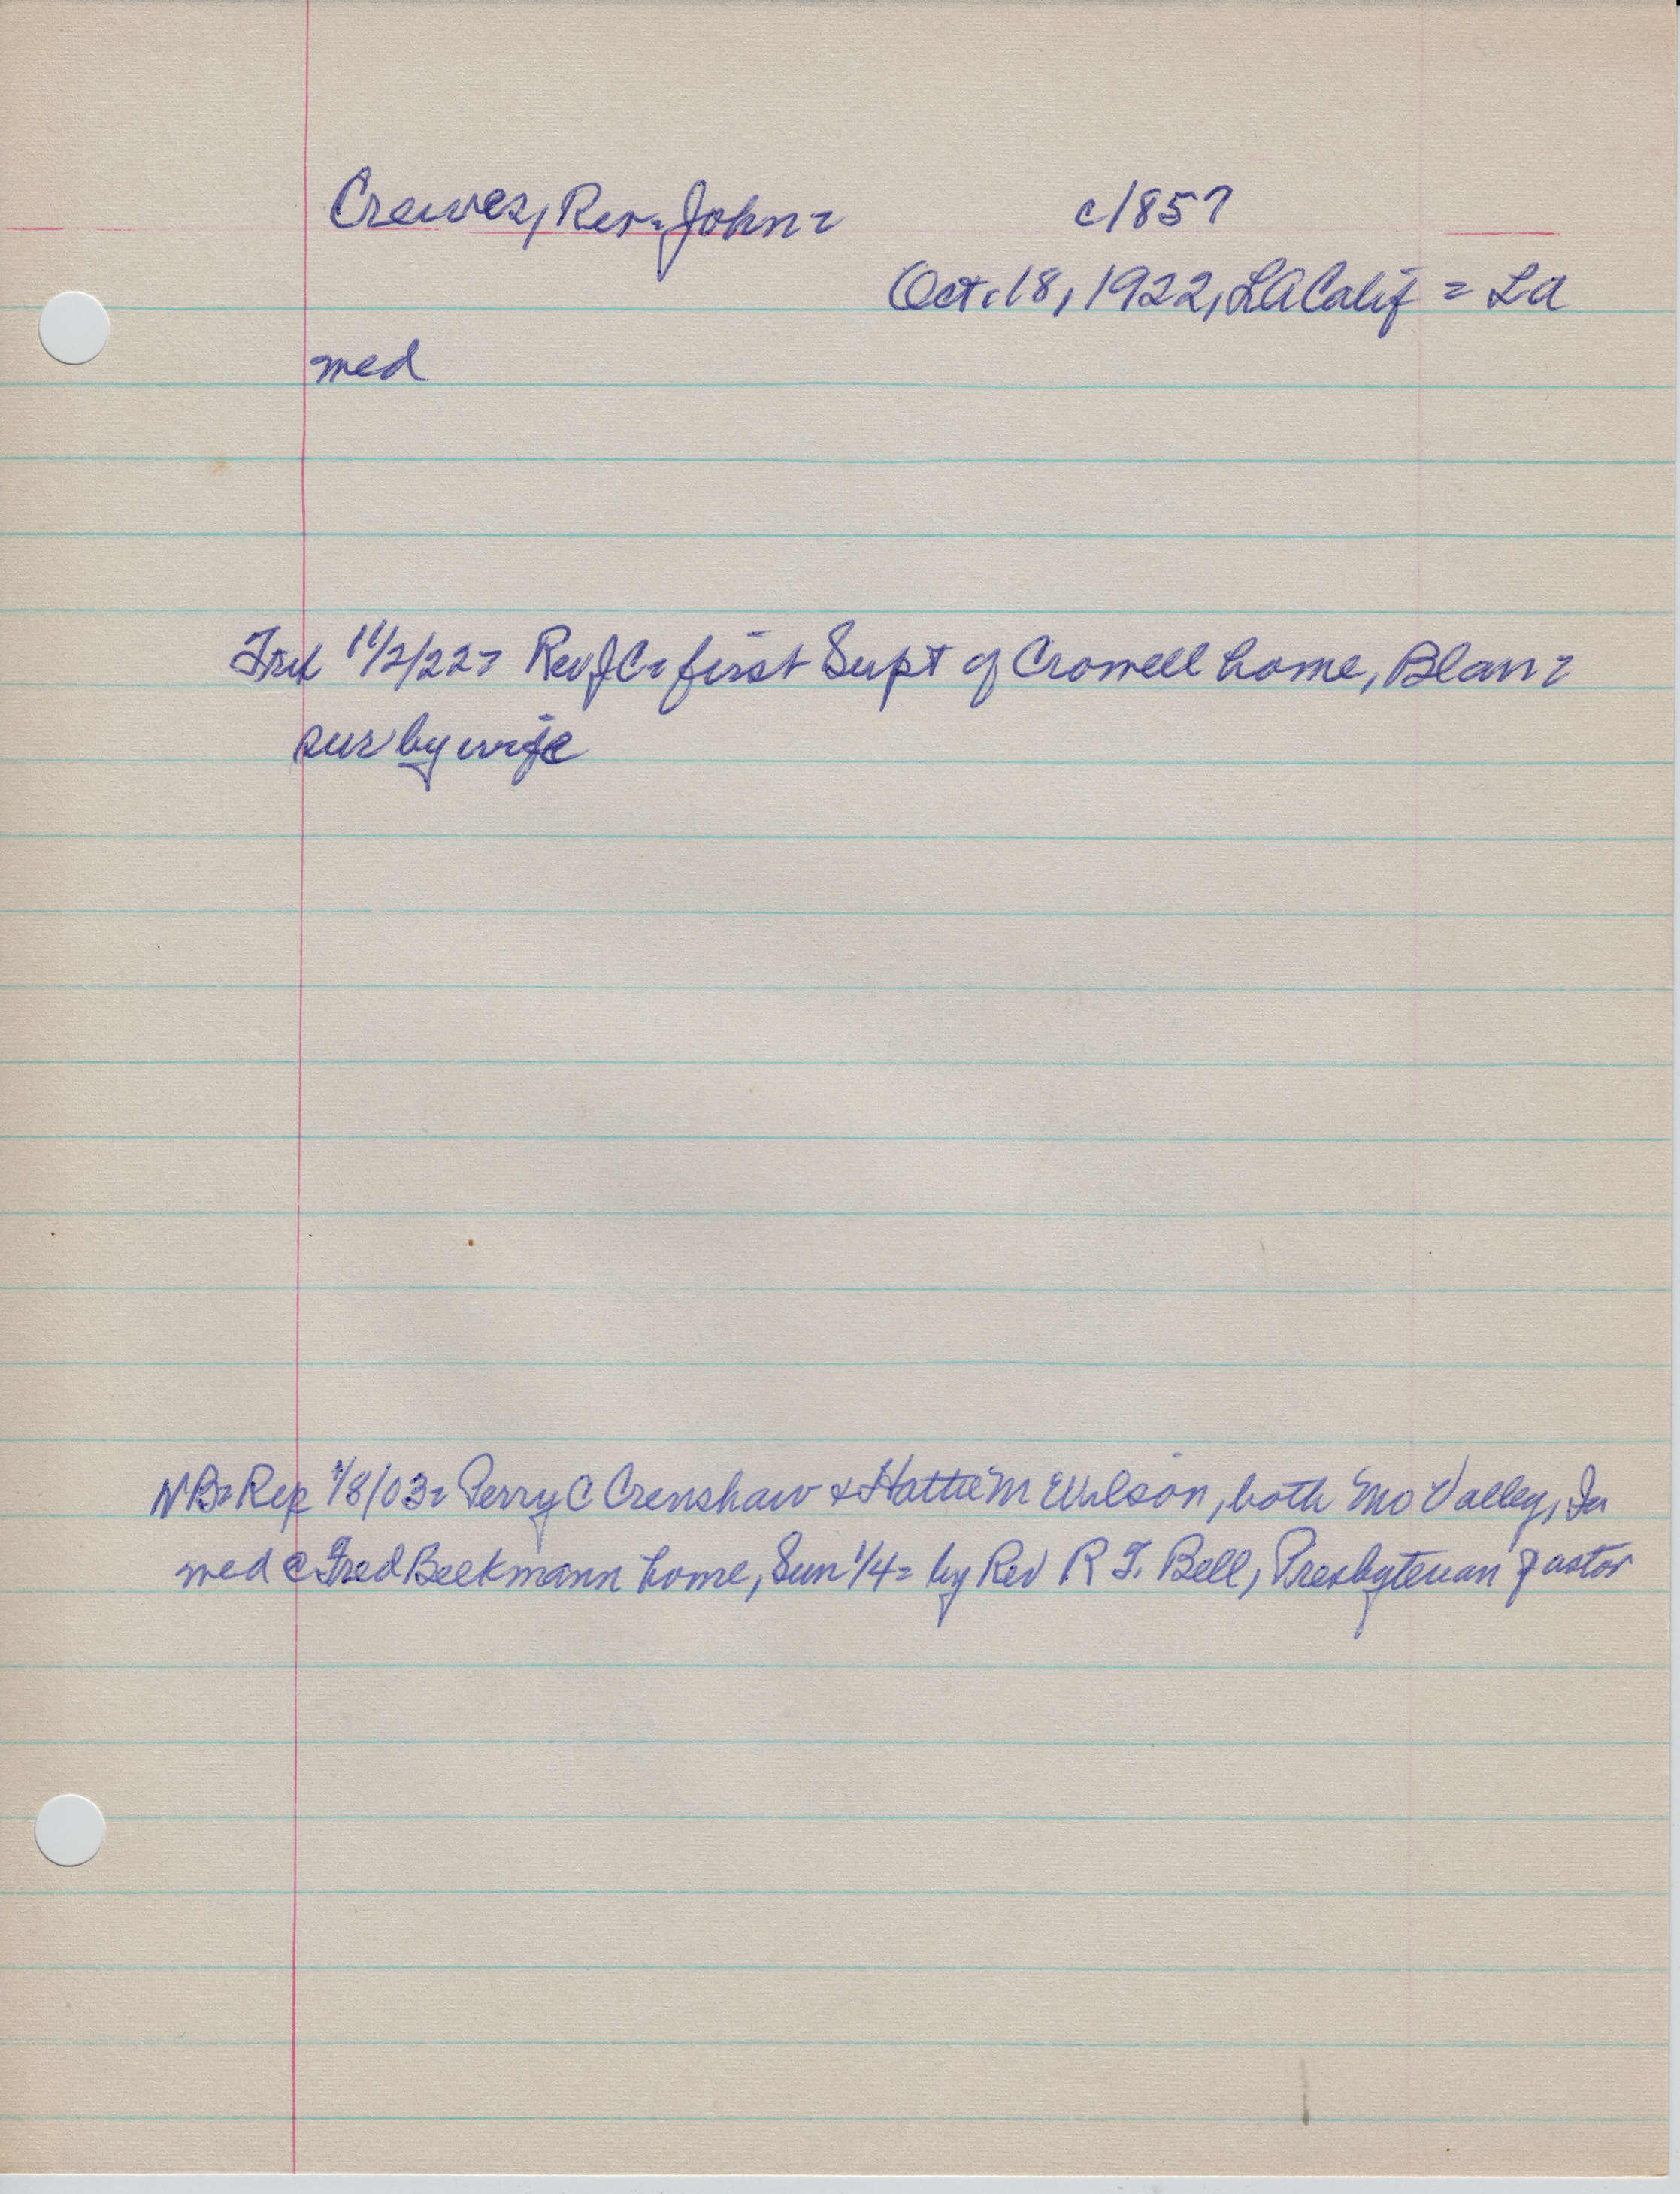 Crewes, Rev. John = c1857
Oct. 18, 1922, LA Calif = LA
med
11/2/22 = Rev JC = first Supt of Crowell home, Blair =
sur by wife
NB = Rep 1/8/03 = Perry C Crenshaw & Hattie M Wilson, both Mo Valley, Ia
med @ Fred Beekmann home, Sun 1/4 = by Rev R T. Bell, Presbyterian pastor